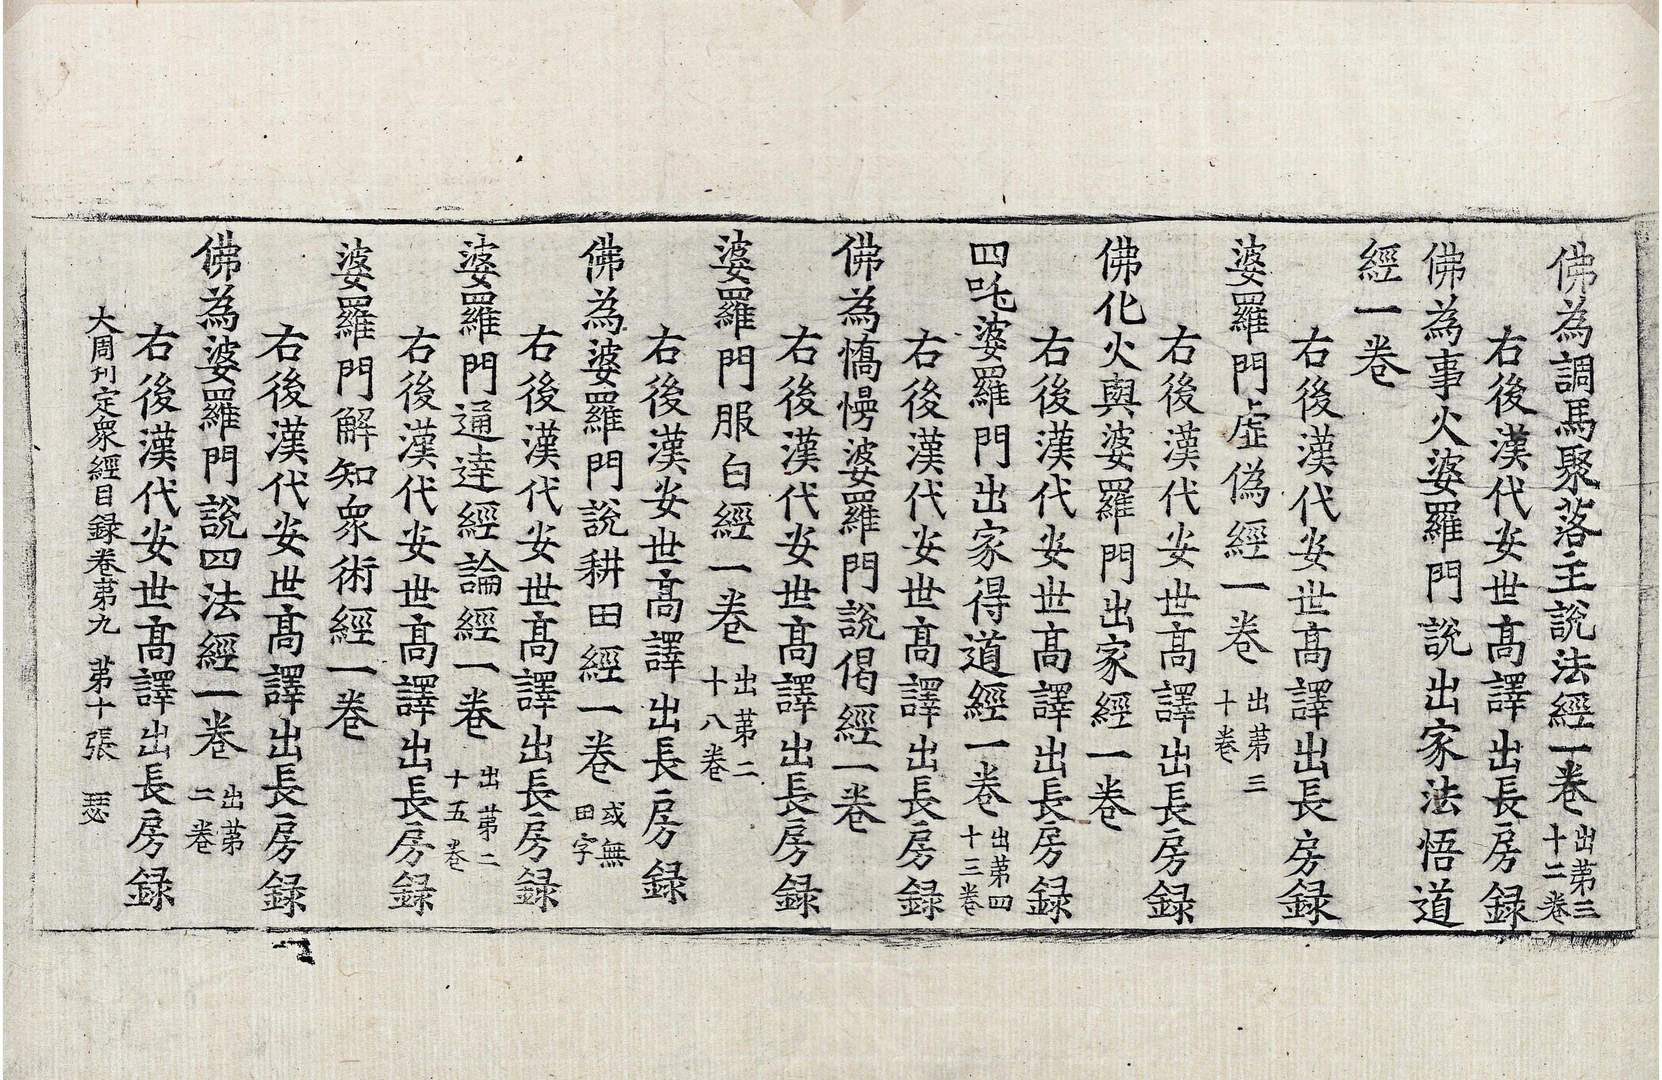 佛為調馬聚落主說法經一卷 出苐三十二卷
右後漢代安世髙譯出長房録
佛為事火婆羅門說出家法悟道
經一卷
右後漢代安世髙譯出長房録
婆羅門虛偽經一卷 出苐三十卷
右後漢代安世髙譯出長房録
佛化火與婆羅門出家經一卷
右後漢代安世髙譯出長房録
四吒婆羅門出家得道經一卷 出苐四十三卷
右後漢代安世髙譯出長房録
佛為憍慢婆羅門說偈經一卷
右後漢代安世髙譯出長房録
婆羅門服白經一卷 出苐二十八卷
右後漢代安世髙譯出長房録
佛為婆羅門說耕田經一卷 或無田字
右後漢代安世髙譯出長房録
婆羅門通達經論經一卷 出苐二十五卷
右後漢代安世髙譯出長房録
婆羅門解知衆術經一卷
右後漢代安世髙譯出長房録
佛為婆羅門說四法經一卷 出苐二卷
右後漢代安世髙譯出長房録
大周刋定衆經目録卷苐九 苐十張 瑟